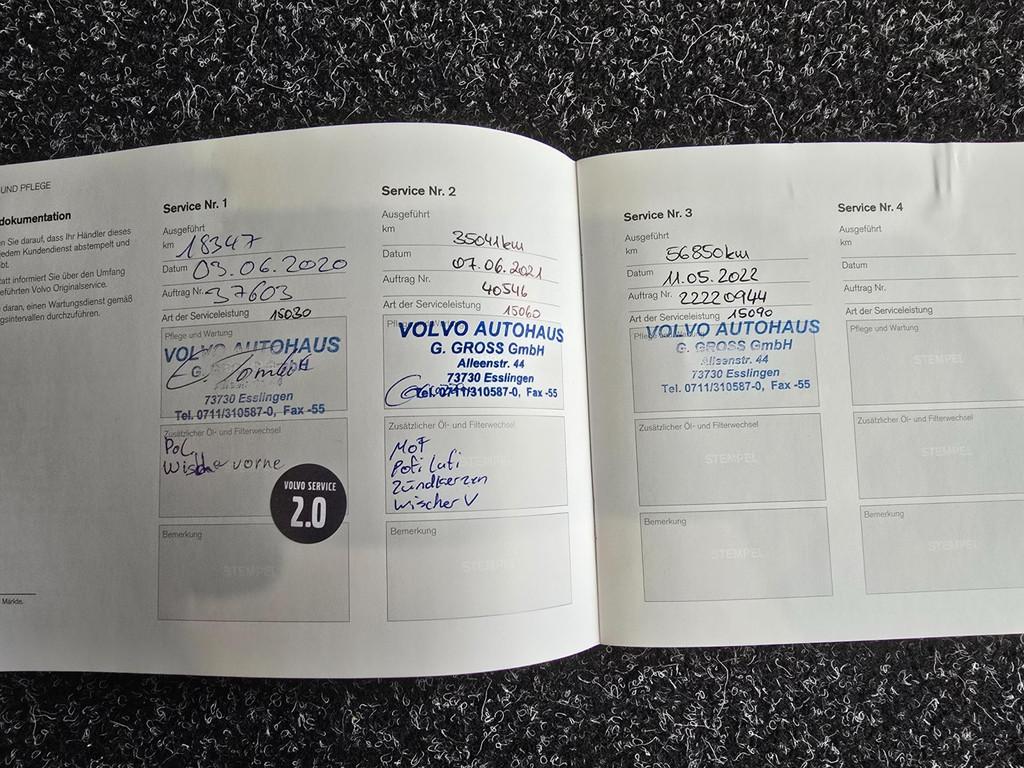 UND PFLEGE
dokumentation
en Sie darauf, dass Ihr Händler dieses
jedem Kundendienst abstempelt und
bt.
tatt informiert Sie über den Umfang
eführten Volvo Originalservice.
daran, einen Wartungsdienst gemäß
gsintervallen durchzuführen.
Märkte.
Service Nr. 1
Ausgeführt
km 18347
Datum 03.06.2020
Auftrag Nr. 37603
Art der Serviceleistung 15030
Pflege und Wartung
VOLVO AUTOHAUS
G.
73730 Esslingen
Tel. 0711/310587-0, Fax -55
Zusätzlicher Öl- und Filterwechsel
PoL
Wischer vorne
VOLVO SERVICE
2.0
Bemerkung
STEMPEL
Service Nr. 2
Ausgeführt
km 35041km
Datum 07.06.2021
Auftrag Nr. 40546
Art der Serviceleistung 15060
VOLVO AUTOHAUS
G. GROSS GmbH
Alleenstr. 44
73730 Esslingen
Tel. 0711/310587-0, Fax -55
Zusätzlicher Öl- und Filterwechsel
MoF
Pofi Lufi
Zündkerzen
Wischer V
Bemerkung
STEMPEL
Service Nr. 3
Ausgeführt
km 56850km
Datum 11.05.2022
Auftrag Nr. 22220944
Art der Serviceleistung 15090
VOLVO AUTOHAUS
G. GROSS GmbH
Alleenstr. 44
73730 Esslingen
Tel. 0711/310587-0, Fax -55
Zusätzlicher Öl- und Filterwechsel
STEMPEL
Bemerkung
STEMPEL
Service Nr. 4
Ausgeführt
km
Datum
Auftrag Nr.
Art der Serviceleistung
Pflege und Wartung
STEMPEL
Zusätzlicher Öl- und Filterwechsel
STEMPEL
Bemerkung
STEMPEL